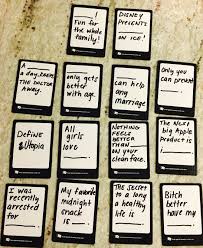 ______!
Fun for the
whole family!
DISNEY
PRESENTS
______
ON ICE!
A ______
a day keeps
THE DOCTOR
AWAY.
______
only gets
better with
age.
______
can help
any
marriage
Only you
can prevent
______.
Define
Utopia
All
girls
love
______.
NOTHING
FEELS
BETTER THAN
______ on
your clean
face.
The Next
big Apple
Product is
______!
I was
recently
arrested
for ______.
My favorite
midnight
snack
is ______.
The secret
to a long
& healthy
life is
______.
Bitch
better
have my
______.